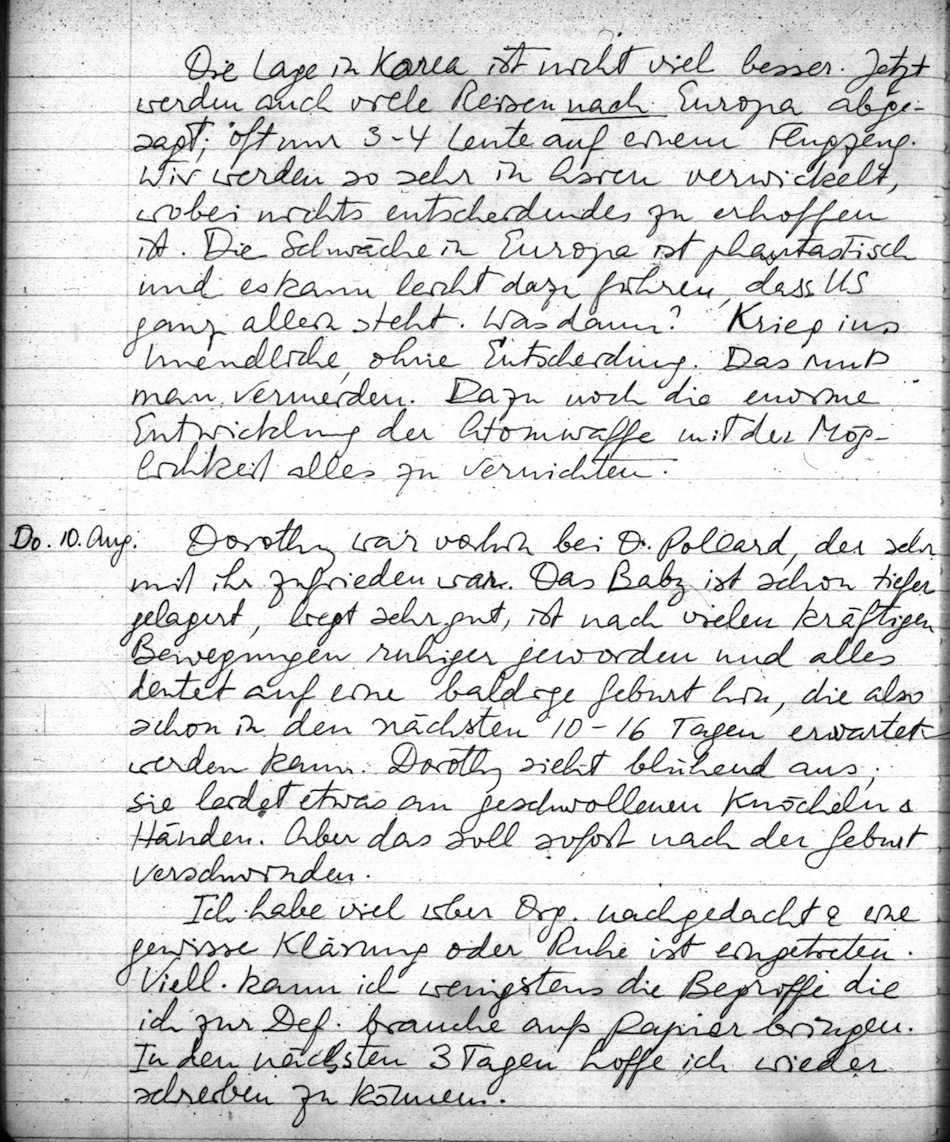 Die Lage in Korea ist nicht viel besser. Jetzt
werden auch viele Reisen nach Europa abge-
sagt; oft nur 3-4 Leute auf einem Flugzeug.
Wir werden so sehr in Asien verwickelt,
wobei nichts entscheidendes zu erhoffen
ist. Die Schwäche in Europa ist phantastisch
und es kann leicht dazu führen, dass US
ganz allein steht. Was dann? Krieg ins
Unendliche, ohne Entscheidung. Das muß
man vermeiden. Dazu noch die enorme
Entwicklung der Atomwaffe mit der Mög-
lichkeit alles zu vernichten.
Do. 10. Aug. Dorothy war vorhin bei D. Pollard, der sehr
mit ihr zufrieden war. Das Baby ist schon tiefer
gelagert, liegt sehr gut, ist nach vielen kräftigen
Bewegungen ruhiger geworden und alles
deutet auf eine baldige Geburt hin, die also
schon in den nächsten 10-16 Tagen erwartet
werden kann. Dorothy sieht blühend aus;
sie leidet etwas an geschwollenen Knöcheln &
Händen. Aber das soll sofort nach der Geburt
verschwinden.
Ich habe viel über Org. nachgedacht & eine
gewisse Klärung oder Ruhe ist eingetreten.
Viell. kann ich wenigstens die Begriffe die
ich zur Def. brauche aufs Papier bringen.
In den nächsten 3 Tagen hoffe ich wieder
schreiben zu können.